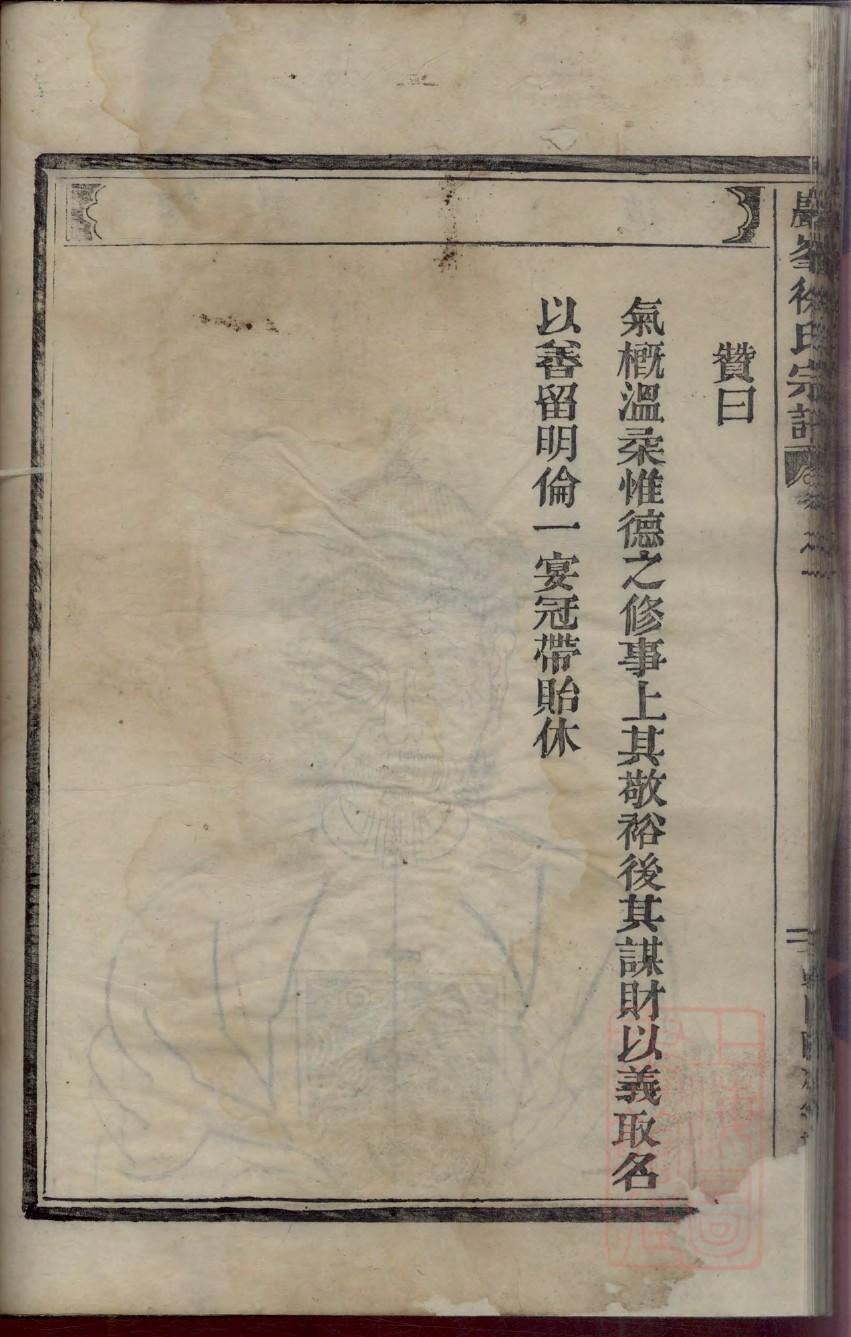 巖岑徐氏宗譜
贊曰
氣概溫柔惟德之修事上其敬裕後其謀財以義取名
以善留明倫一宴冠帶貽休